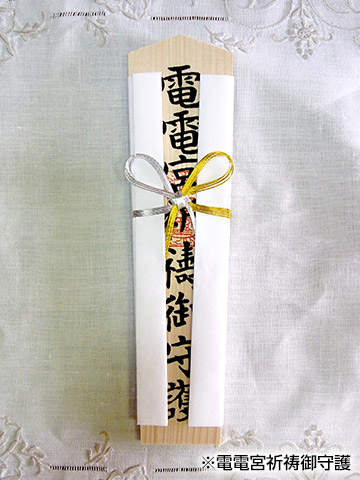 電電宮祈祷御守護
※電電宮祈祷御守護